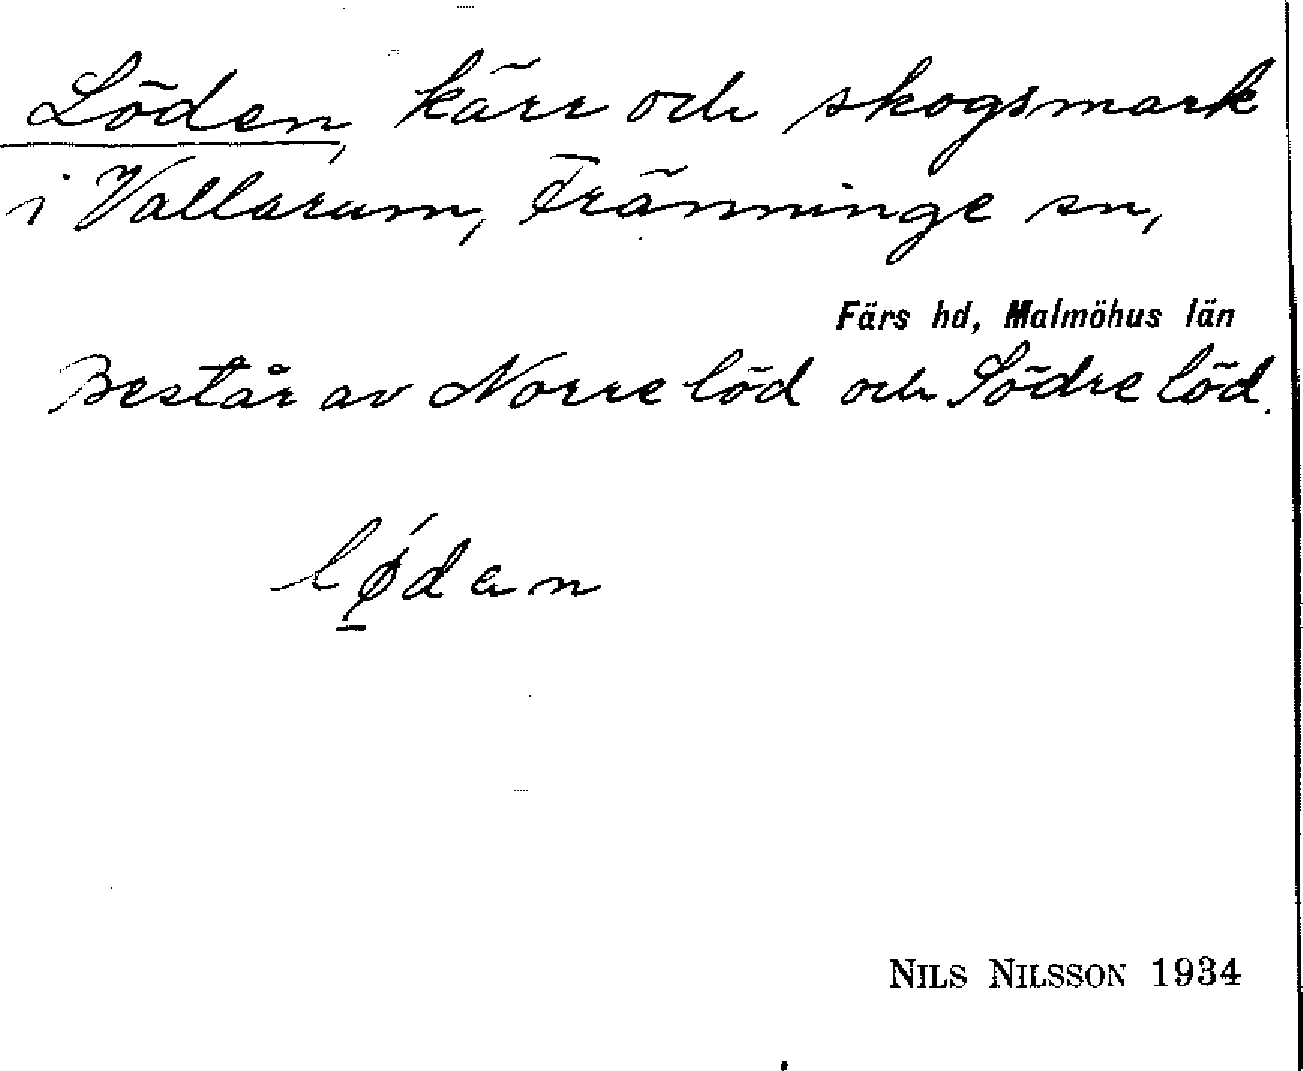 Löden, kärr och skogsmark
i Vallarum, Fränninge sn,
Färs hd, Malmöhus län
Består av Norre löd och Södre löd.
lǿ̱dan
NILS NILSSON 1934